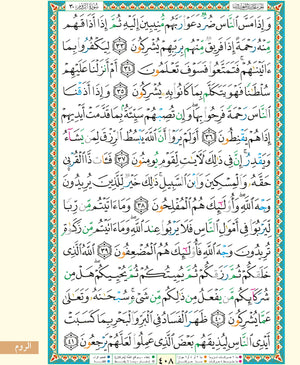 وَإِذَا مَسَّ ٱلنَّاسَ ضُرٌّ دَعَوْا۟ رَبَّهُم مُّنِيبِينَ إِلَيْهِ ثُمَّ إِذَآ أَذَاقَهُم
مِّنْهُ رَحْمَةً إِذَا فَرِيقٌ مِّنْهُم بِرَبِّهِمْ يُشْرِكُونَ ٣٣ لِيَكْفُرُوا۟ بِمَآ
ءَاتَيْنَٰهُمْ ۚ فَتَمَتَّعُوا۟ فَسَوْفَ تَعْلَمُونَ ٣٤ أَمْ أَنزَلْنَا عَلَيْهِمْ
سُلْطَٰنًا فَهُوَ يَتَكَلَّمُ بِمَا كَانُوا۟ بِهِۦ يُشْرِكُونَ ٣٥ وَإِذَآ أَذَقْنَا
ٱلنَّاسَ رَحْمَةً فَرِحُوا۟ بِهَا ۖ وَإِن تُصِبْهُمْ سَيِّئَةٌۢ بِمَا قَدَّمَتْ أَيْدِيهِمْ
إِذَا هُمْ يَقْنَطُونَ ٣٦ أَوَلَمْ يَرَوْا۟ أَنَّ ٱللَّهَ يَبْسُطُ ٱلرِّزْقَ لِمَن يَشَآءُ
وَيَقْدِرُ ۚ إِنَّ فِى ذَٰلِكَ لَءَايَٰتٍ لِّقَوْمٍ يُؤْمِنُونَ ٣٧ فَـَٔاتِ ذَا ٱلْقُرْبَىٰ
حَقَّهُۥ وَٱلْمِسْكِينَ وَٱبْنَ ٱلسَّبِيلِ ۚ ذَٰلِكَ خَيْرٌ لِّلَّذِينَ يُرِيدُونَ
وَجْهَ ٱللَّهِ ۖ وَأُو۟لَٰٓئِكَ هُمُ ٱلْمُفْلِحُونَ ٣٨ وَمَآ ءَاتَيْتُم مِّن رِّبًا
لِّيَرْبُوَا۟ فِىٓ أَمْوَٰلِ ٱلنَّاسِ فَلَا يَرْبُوا۟ عِندَ ٱللَّهِ ۖ وَمَآ ءَاتَيْتُم مِّن زَكَوٰةٍ
تُرِيدُونَ وَجْهَ ٱللَّهِ فَأُو۟لَٰٓئِكَ هُمُ ٱلْمُضْعِفُونَ ٣٩ ٱللَّهُ ٱلَّذِى
خَلَقَكُمْ ثُمَّ رَزَقَكُمْ ثُمَّ يُمِيتُكُمْ ثُمَّ يُحْيِيكُمْ ۖ هَلْ مِن
شُرَكَآئِكُم مَّن يَفْعَلُ مِن ذَٰلِكُم مِّن شَىْءٍ ۚ سُبْحَٰنَهُۥ وَتَعَٰلَىٰ
عَمَّا يُشْرِكُونَ ٤٠ ظَهَرَ ٱلْفَسَادُ فِى ٱلْبَرِّ وَٱلْبَحْرِ بِمَا كَسَبَتْ
أَيْدِى ٱلنَّاسِ لِيُذِيقَهُم بَعْضَ ٱلَّذِى عَمِلُوا۟ لَعَلَّهُمْ يَرْجِعُونَ ٤١
٤٠٨
الروم